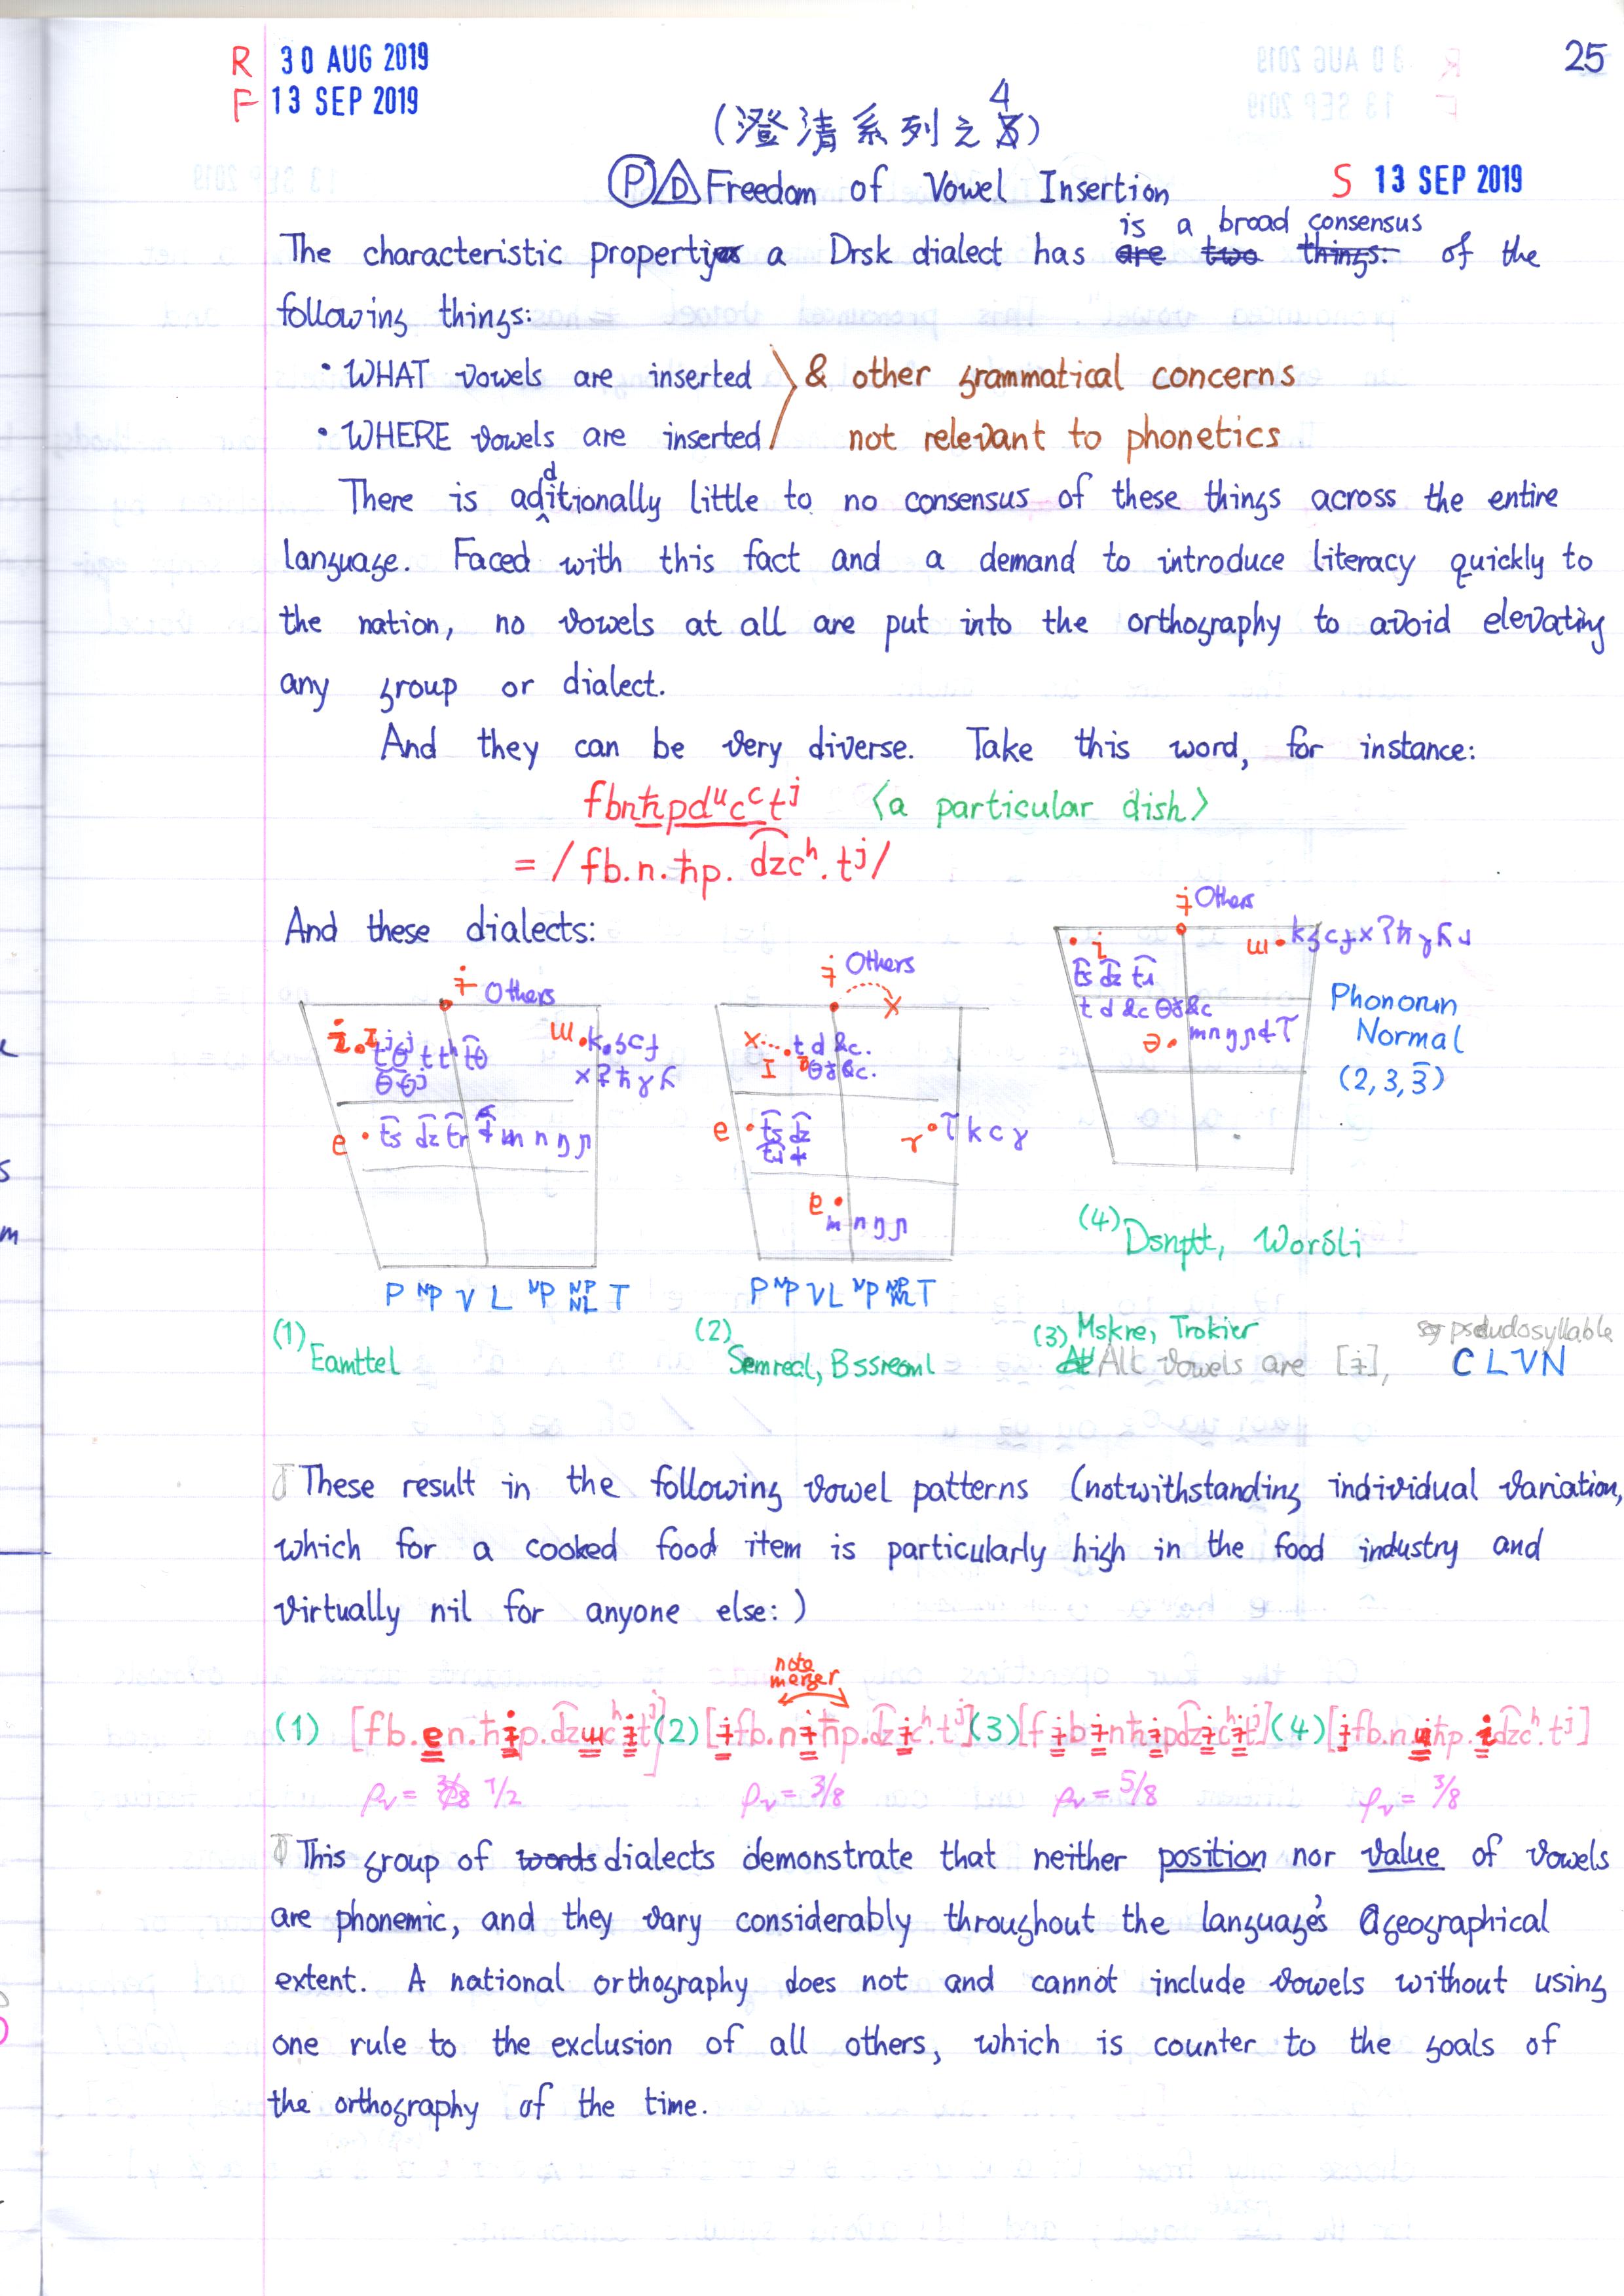 R 30 AUG 2019
25
F 13 SEP 2019
(澄清系列之4)
P D Freedom of Vowel Insertion
S 13 SEP 2019
The characteristic property a Drsk dialect has is a broad consensus of the
following things:
• WHAT vowels are inserted & other grammatical concerns
• WHERE vowels are inserted not relevant to phonetics
There is additionally little to no consensus of these things across the entire
language. Faced with this fact and a demand to introduce literacy quickly to
the nation, no vowels at all are put into the orthography to avoid elevating
any group or dialect.
And they can be very diverse. Take this word, for instance:
fbnħpdᵘcᶜtʲ <a particular dish>
= /fb.n.ħp.d͡zcʰ.tʲ/
And these dialects:
ɨ Others
ɨ Others
ɨ Others
i
ɯ
t͡s d͡z
t d &c θ &c
ə
Phonorun
Normal
(2, 3, 3)
ɯ
e
t͡s d͡z
m n ŋ ɲ
t d &c.
ɪ
e
t͡s d͡z
k c ɣ
m n ŋ ɲ
(4) Dsnptt, Worsli
P NP V L NP NP NL T
P NP V L NP NP NL T
(1) Eamttel
(2) Semreal, Bssreoml
(3) Mskre, Trokier
All vowels are [ɨ], pseudosyllable CLVN
These result in the following vowel patterns (notwithstanding individual variation,
which for a cooked food item is particularly high in the food industry and
virtually nil for anyone else:)
note merger
(1) [fb.en.ħɨp.d͡zɯcʰɨtʲ] (2) [ɨfb.nɨħp.d͡zɨcʰ.tʲ] (3) [fɨbɨnħɨpd͡zɨcʰɨtʲ] (4) [ɨfb.n.ɯħp.id͡zcʰ.tʲ]
ρᵥ = 1/2 ρᵥ = 3/8 ρᵥ = 5/8 ρᵥ = 3/8
This group of words dialects demonstrate that neither position nor value of vowels
are phonemic, and they vary considerably throughout the language's geographical
extent. A national orthography does not and cannot include vowels without using
one rule to the exclusion of all others, which is counter to the goals of
the orthography of the time.